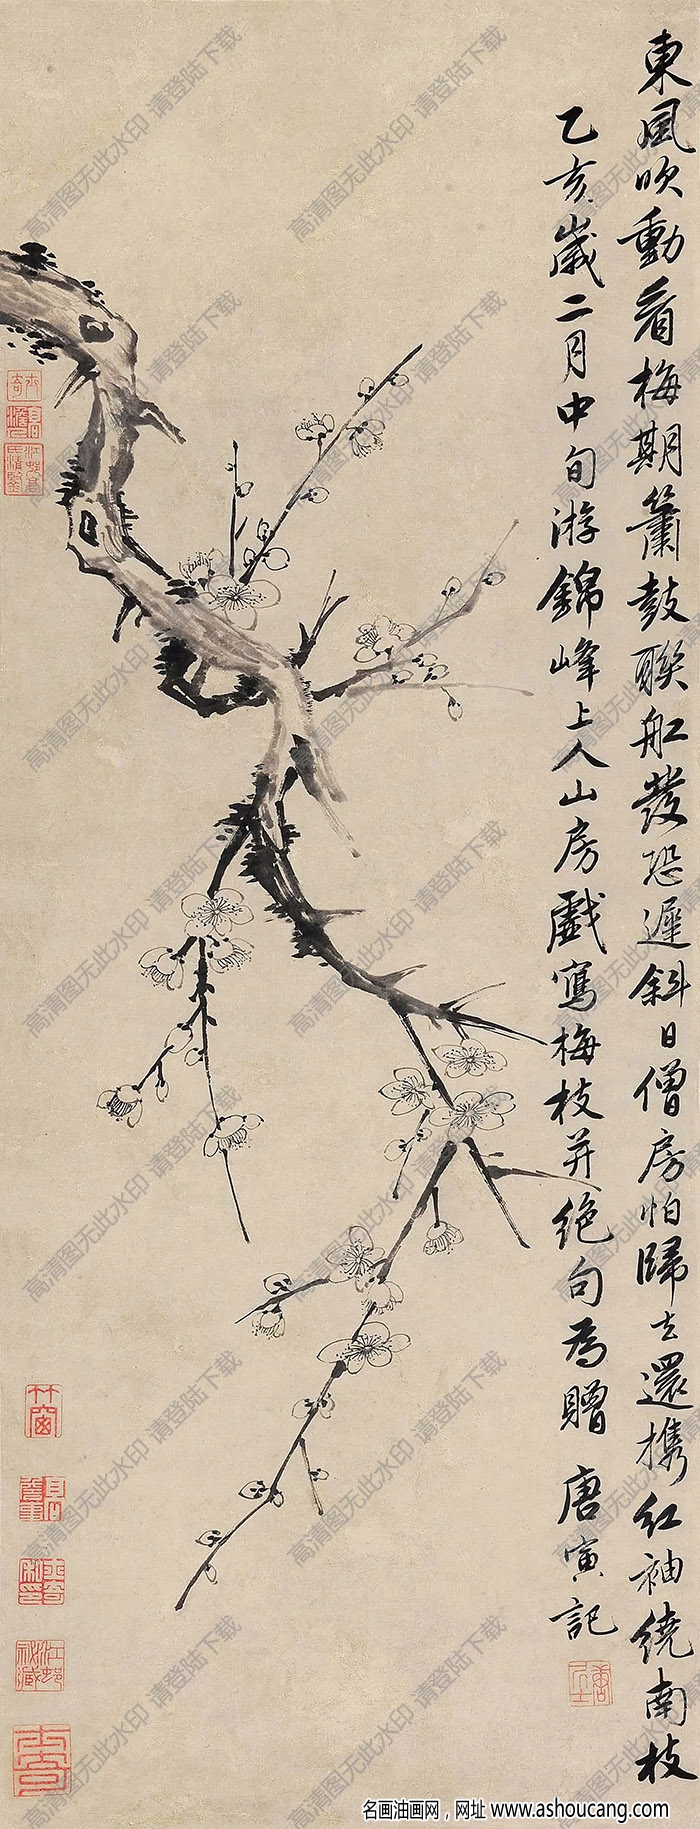 東風吹動看梅期簫鼓聯舡發恐遲斜日僧房怕歸去還攜紅袖繞南枝
乙亥歲二月中旬游錦峰上人山房戲寫梅枝并絕句為贈 唐寅記
高清图无此水印 请登陆下载
名画油画网，网址 www.ashoucang.com